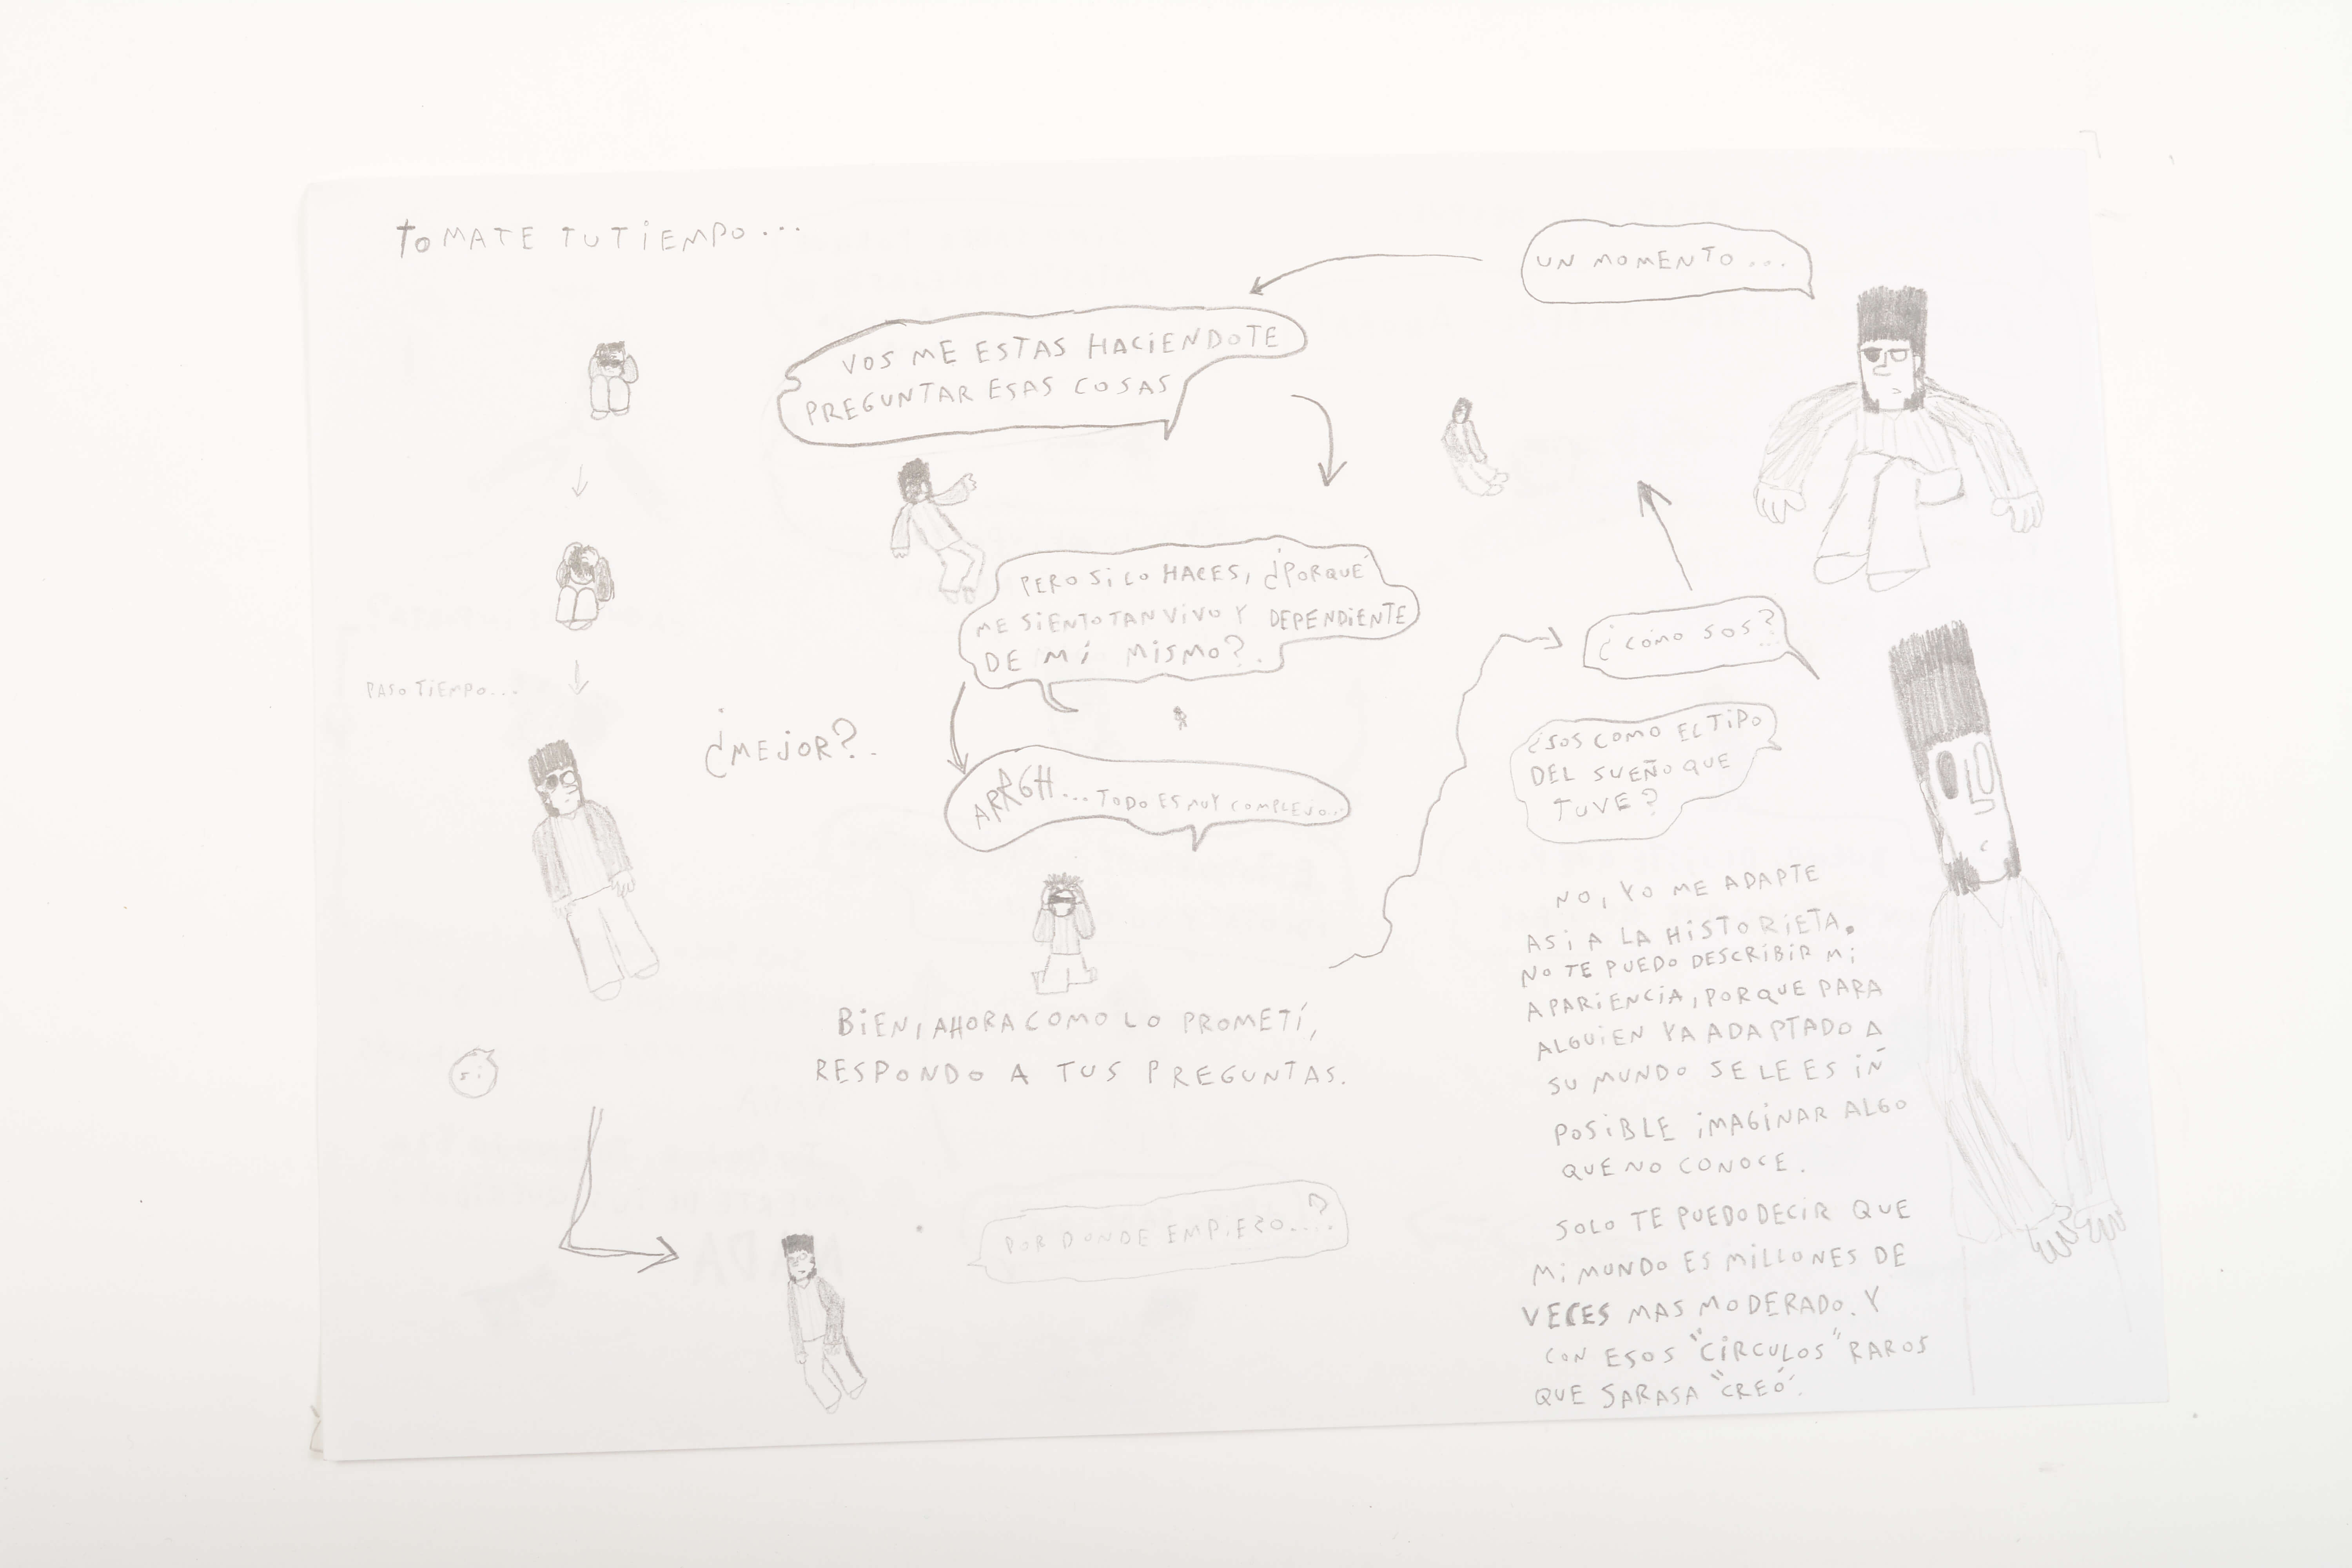 TOMATE TU TIEMPO...
PASO TIEMPO...
¿MEJOR?.
SI
POR DONDE EMPIEZO...?
UN MOMENTO...
VOS ME ESTAS HACIENDOTE
PREGUNTAR ESAS COSAS
PERO SI LO HACES, ¿PORQUÉ
ME SIENTO TAN VIVO Y DEPENDIENTE
DE MÍ MISMO?.
ARRGH... TODO ES MUY COMPLEJO..
BIEN, AHORA COMO LO PROMETÍ,
RESPONDO A TUS PREGUNTAS.
¿CÓMO SOS?...
¿SOS COMO EL TIPO
DEL SUEÑO QUE
TUVE?
NO, YO ME ADAPTE
ASI A LA HISTORIETA.
NO TE PUEDO DESCRIBIR MI
APARIENCIA, PORQUE PARA
ALGUIEN YA ADAPTADO A
SU MUNDO SE LE ES IÑ
POSIBLE IMAGINAR ALGO
QUE NO CONOCE.
SOLO TE PUEDO DECIR QUE
MI MUNDO ES MILLONES DE
VECES MAS MODERADO. Y
CON ESOS "CÍRCULOS" RAROS
QUE SARASA "CREÓ".